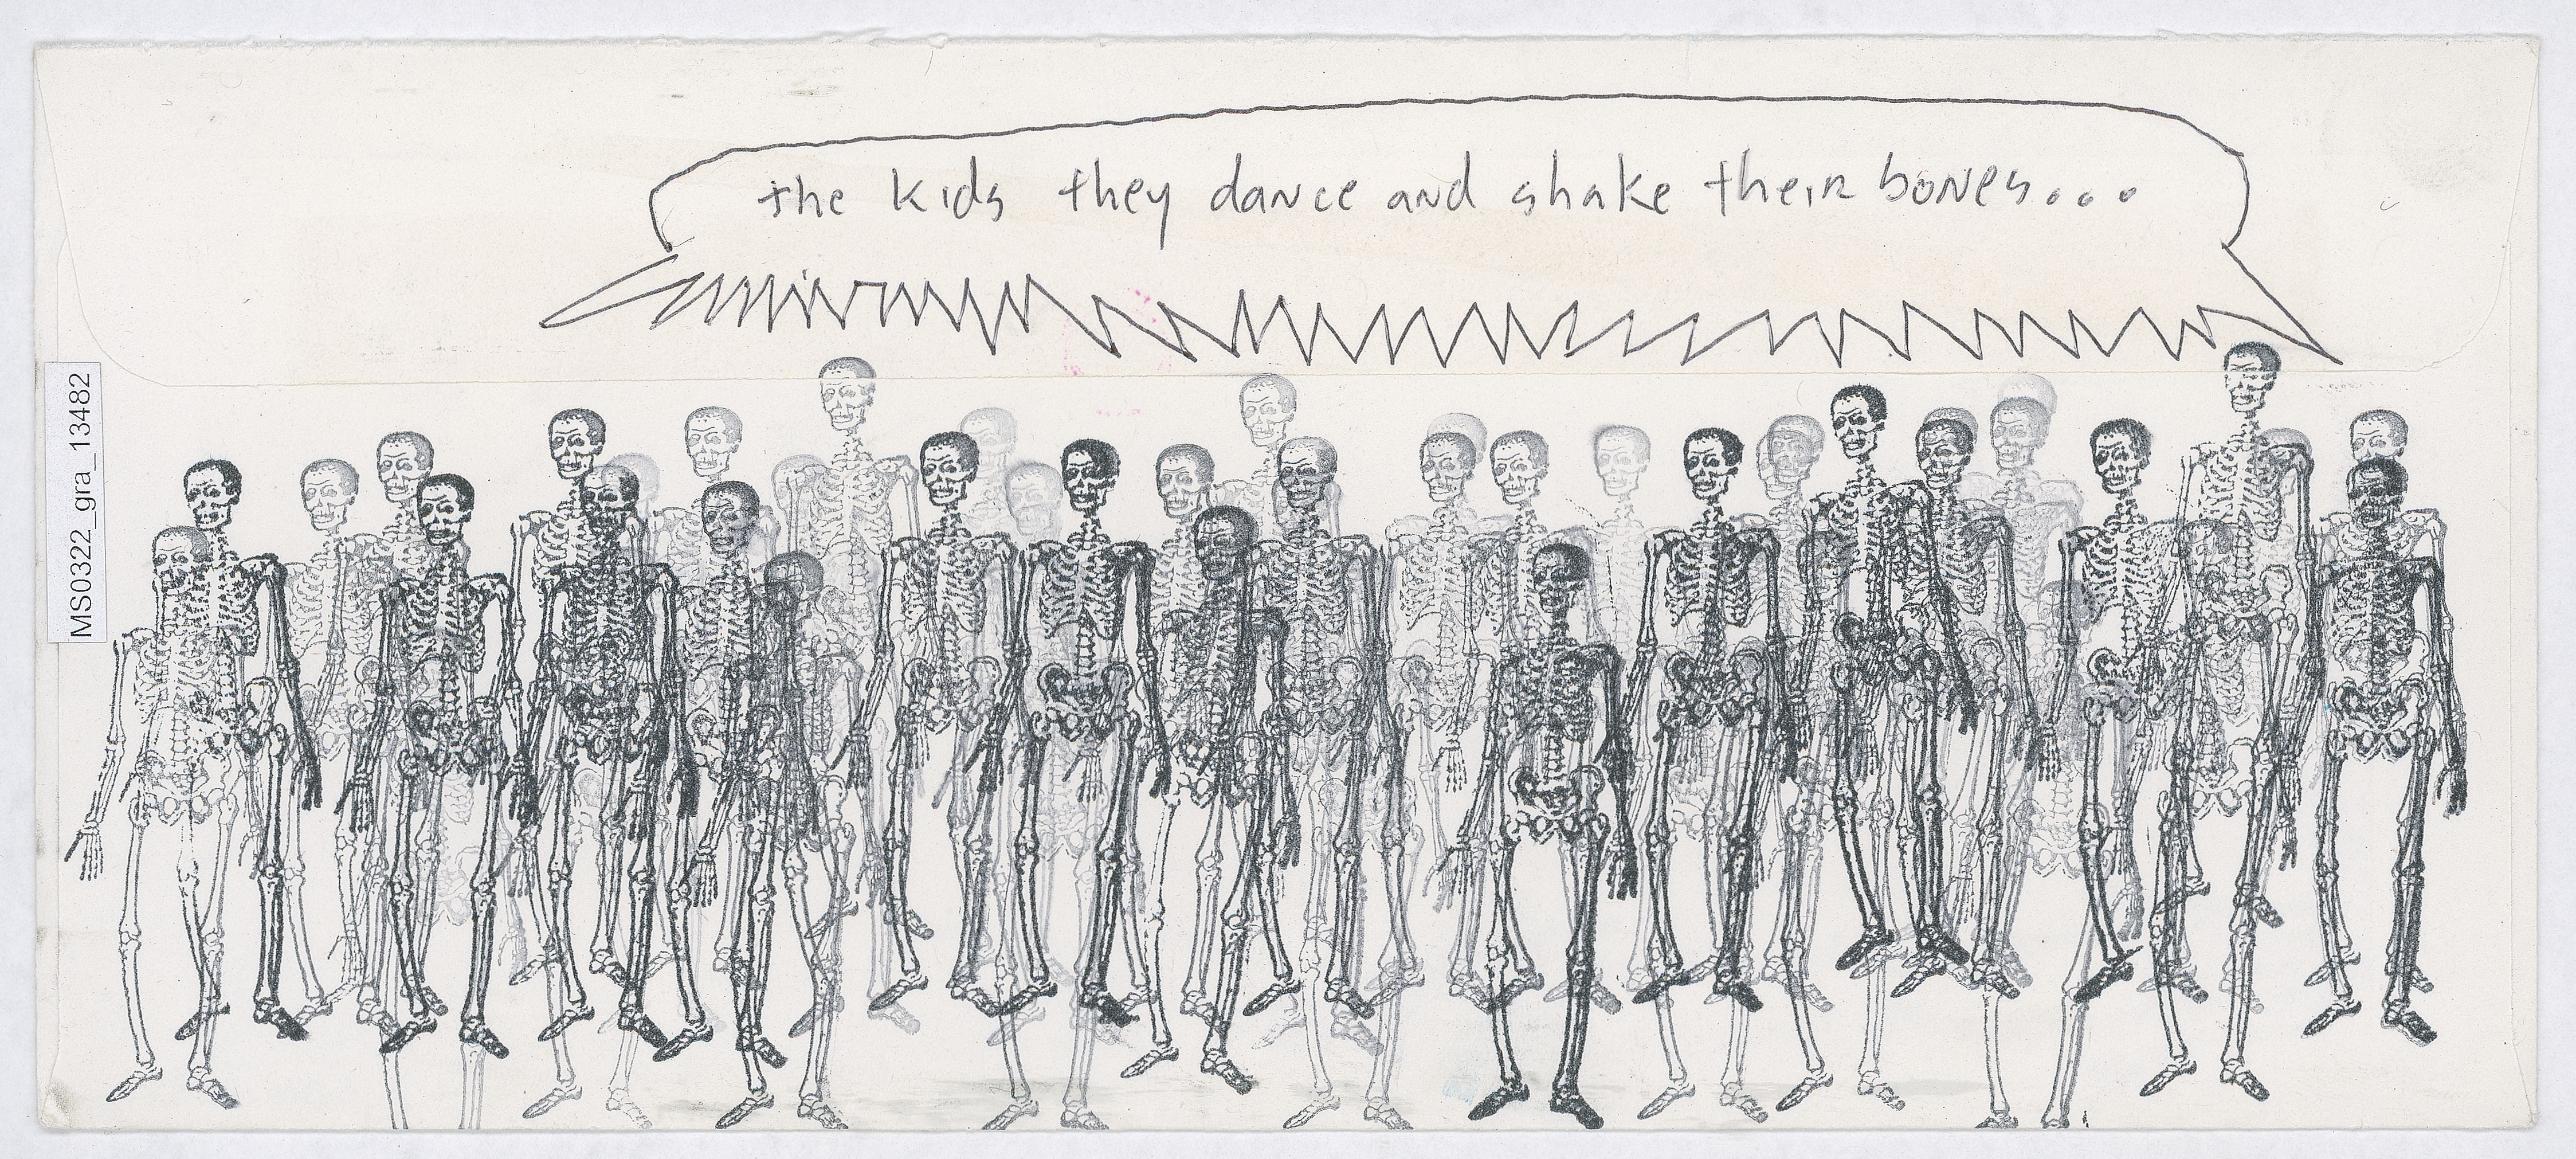 the kids they dance and shake their bones...
MS0322_gra_13482